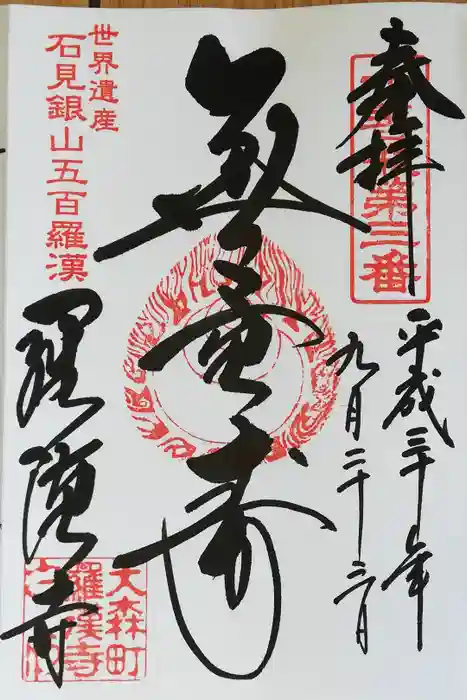 奉拝
第三番
平成三十年
九月二十三日
無量寿
世界遺産
石見銀山五百羅漢
羅漢寺
大森町
羅漢寺